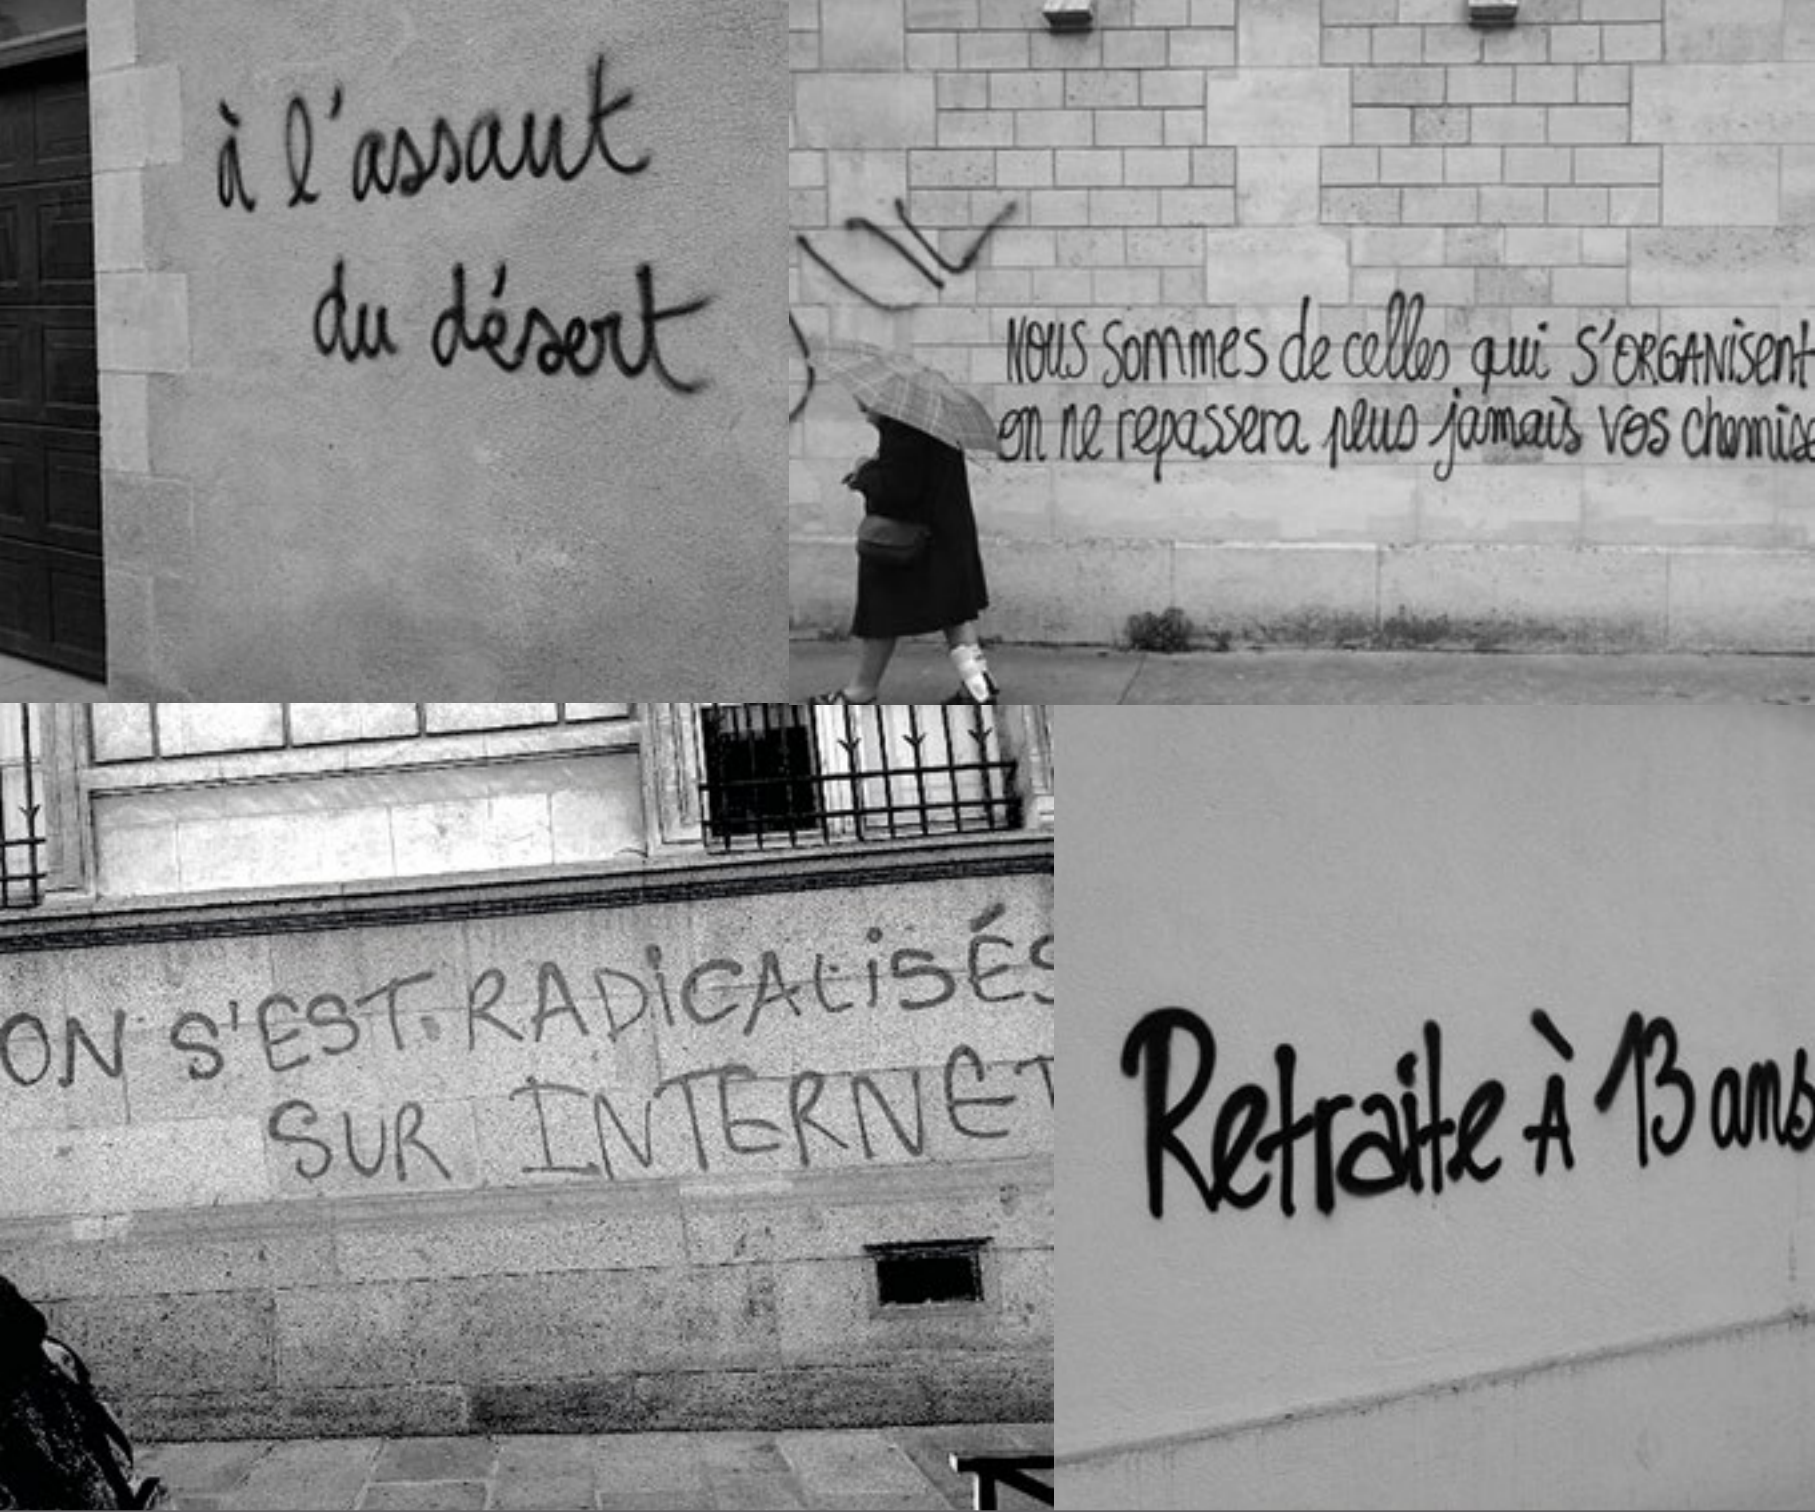 à l'assaut
du désert
NOUS sommes de celles qui S'ORGANisent
on ne repassera plus jamais vos chemise
ON S'EST RADiCALiSÉS
SUR INTERNET
Retraite À 13 ans